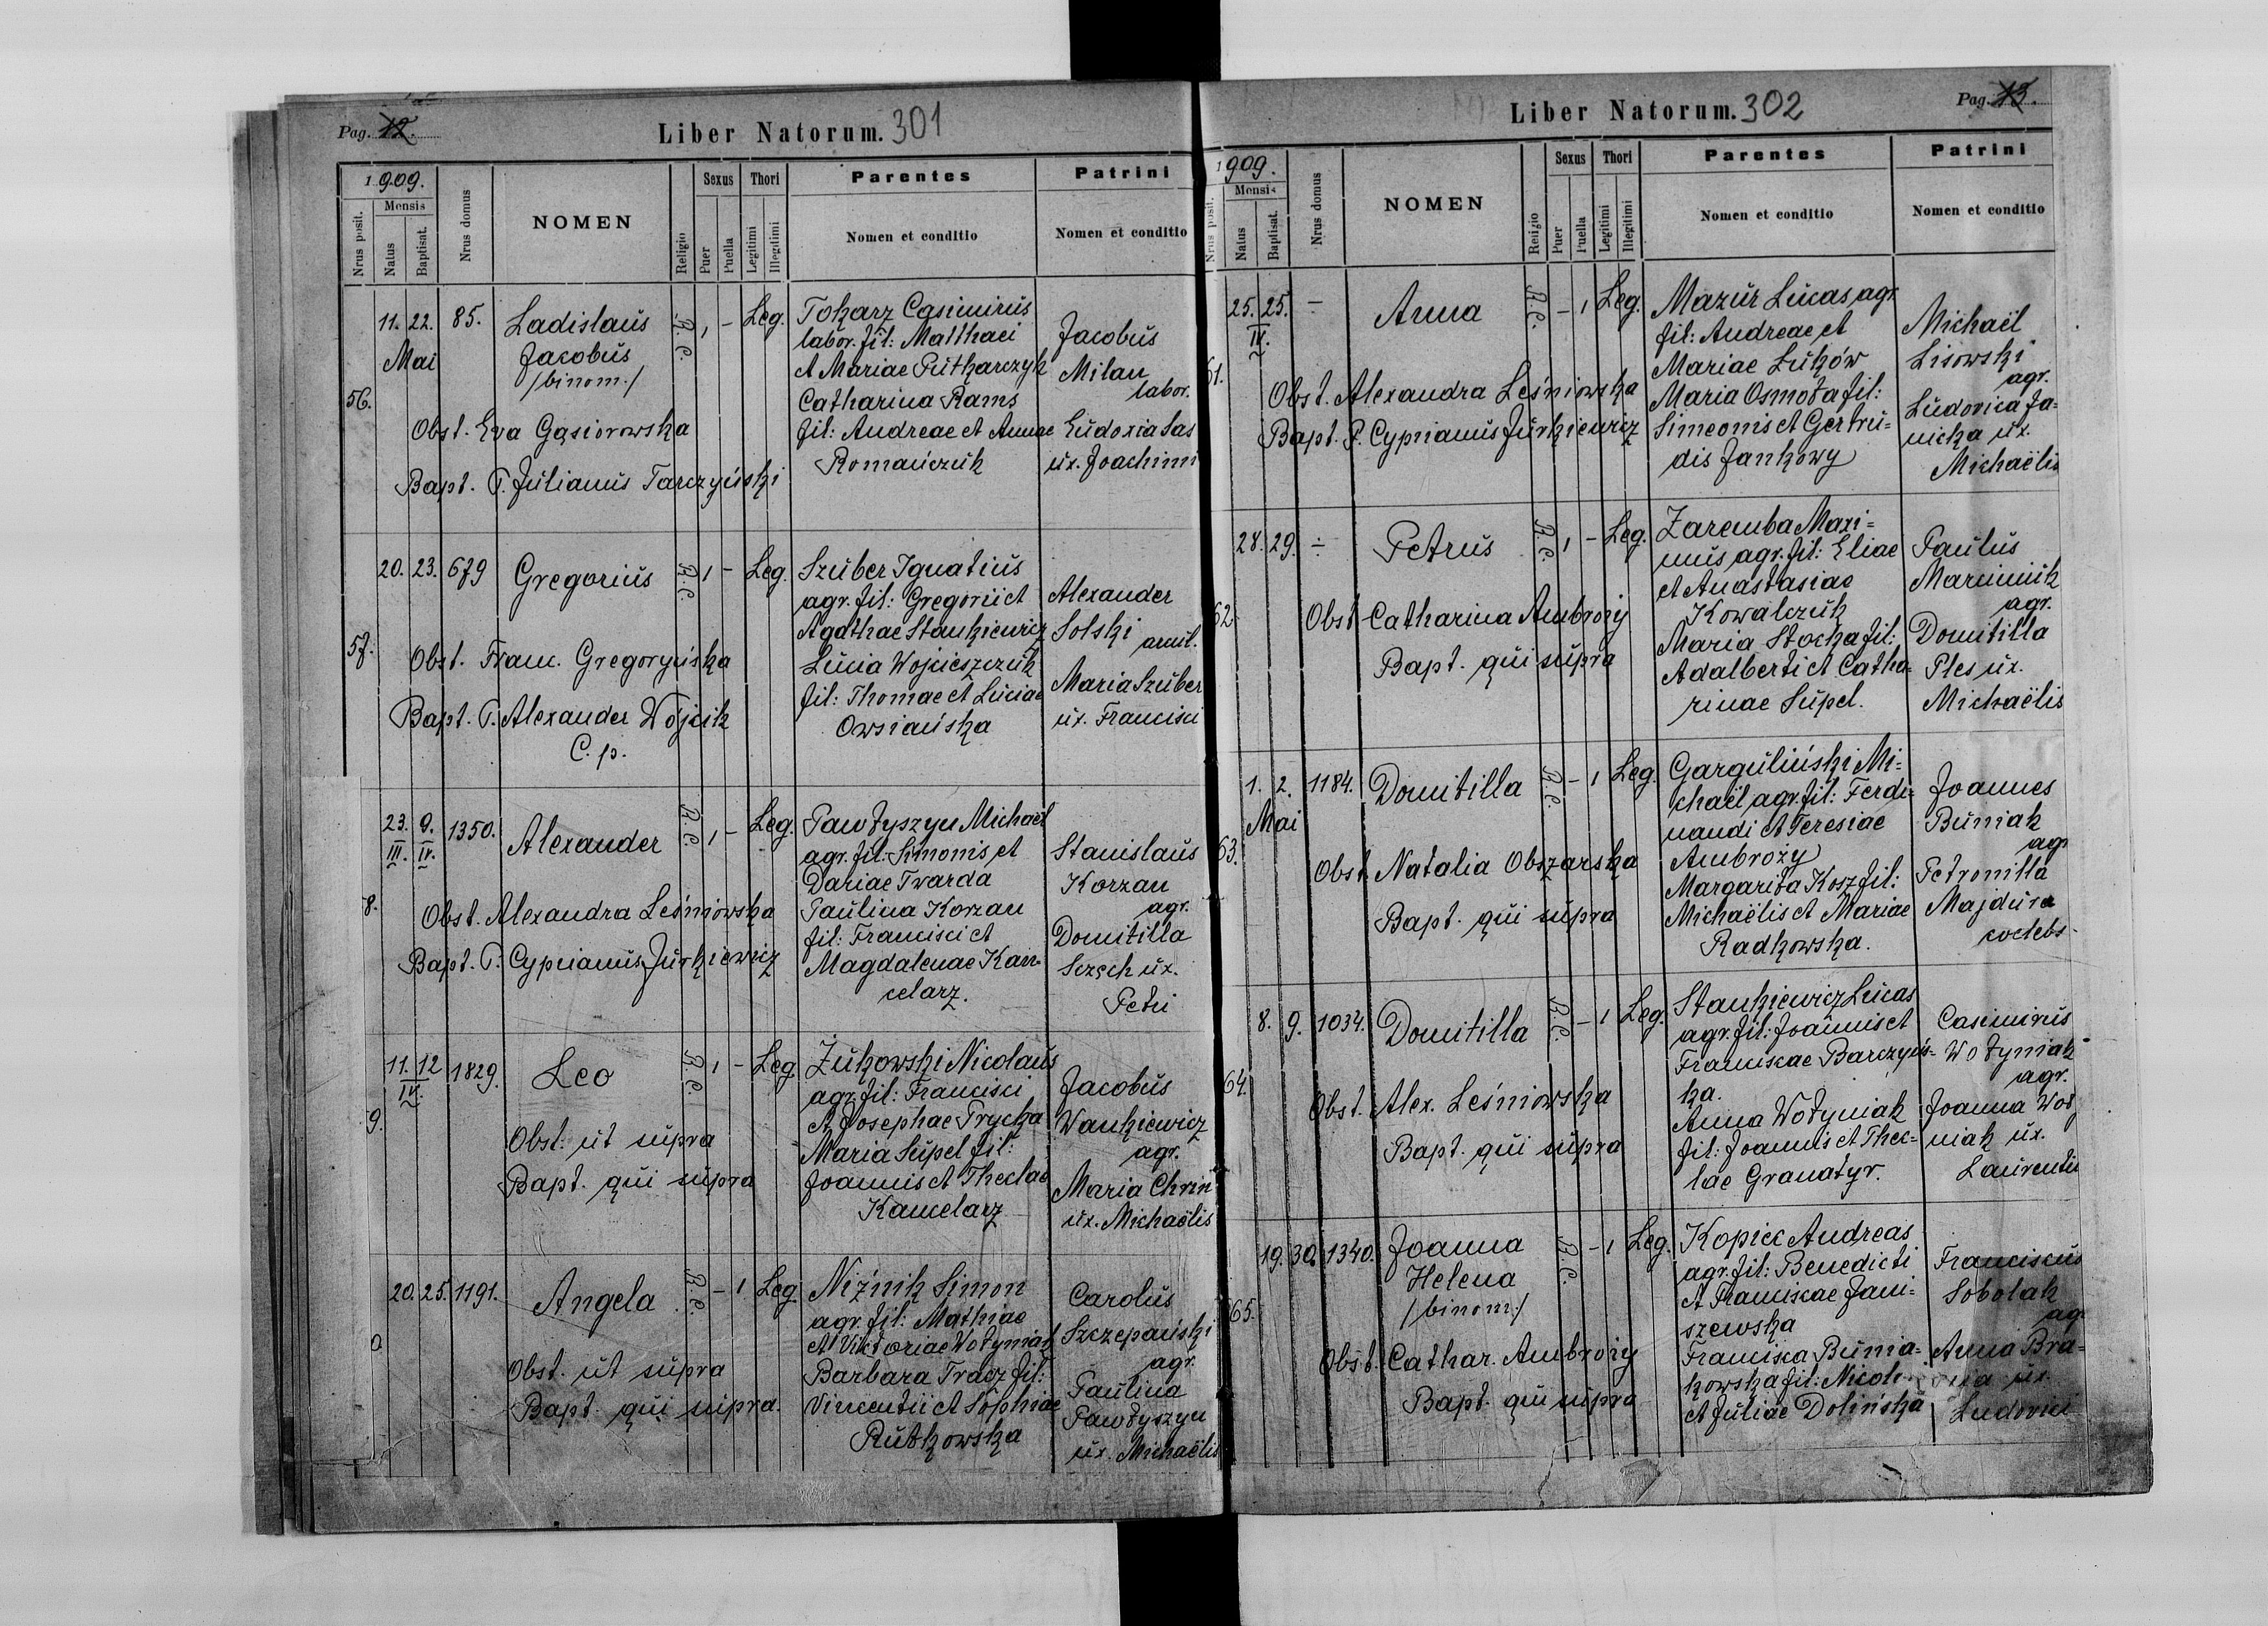 Pag. 12.
Liber Natorum. 301
1909.
Nrus posit.
Mensis
Natus
Baptisat.
Nrus domus
NOMEN
Religio
Sexus
Puer
Puella
Thori
Legitimi
Illegitimi
Parentes
Nomen et conditio
Patrini
Nomen et conditio
56.
11. 22. 85.
Mai
Ladislaus
Jacobus
/binom./
R. C.
1 - Leg.
Tokarz Casimirus
labor. fil: Matthaei
et Mariae Putkarczyk
Catharina Rams
fil: Andreae et Annae
Romańczuk
Jacobus
Milan
labor.
Eudoxia Sas
ux. Joachimi
Obst. Eva Gąsiorowska
Bapt. P. Julianus Tarczyński
57.
20. 23. 679
Gregorius
R. C.
1 - Leg.
Szuber Ignatius
agr. fil: Gregorii et
Agathae Stankiewicz
Lucia Wojcieszczuk
fil: Thomae et Luciae
Owsiańska
Alexander
Solski
amil.
Maria Szuber
ux. Francisci
Obst. Franc. Gregoryńska
Bapt. P. Alexander Wójcik
C. p.
8.
23. 9. 1350.
III. IV.
Alexander
R. C.
1 - Leg.
Pawłyszyn Michaël
agr. fil: Simonis et
Dariae Twarda
Paulina Korzan
fil: Francisci et
Magdalenae Kan-
celarz.
Stanislaus
Korzan
agr.
Domitilla
Sczęch ux.
Petri
Obst. Alexandra Leśniowska
Bapt. P. Cyprianus Jurkiewicz
9.
11. 12 1829.
IV.
Leo
R. C.
1 - Leg
Żukowski Nicolaus
agr. fil: Francisci
et Josephae Prycka
Maria Supel fil:
Joannis et Theclae
Kancelarz
Jacobus
Wankiewicz
agr.
Maria Chrin
ux. Michaëlis
Obst. ut supra
Bapt. qui supra
0
20. 25. 1191.
Angela
R. C.
- 1 Leg
Niźnik Simon
agr. fil: Mathiae
et Victoriae Wołyniak
Barbara Tracz fil:
Vincentii et Sophiae
Rutkowska
Carolus
Szczepański
agr.
Paulina
Pawłyszyn
ux. Michaëlis
Obst. ut supra
Bapt. qui supra.
Liber Natorum. 302
Pag. 13.
1909.
Nrus posit.
Mensis
Natus
Baptisat.
Nrus domus
NOMEN
Religio
Sexus
Puer
Puella
Thori
Legitimi
Illegitimi
Parentes
Nomen et conditio
Patrini
Nomen et conditio
61.
25. 25. -
IV.
Anna
R. C.
- 1 Leg.
Mazur Lucas agr
fil: Andreae et
Mariae Łuków
Maria Osmoła fil:
Simeonis et Gertru=
dis Jankowy
Michaël
Lisowski
agr.
Ludovica Ja=
nicka ux.
Michaëlis
Obst. Alexandra Leśniowska
Bapt. P. Cyprianus Jurkiewicz
62.
28. 29. ÷
Petrus
R. C.
1 - Leg.
Zaremba Maxi=
mus agr. fil: Eliae
et Anastasiae
Kowalczuk
Maria Stocka fil:
Adalberti et Catha-
rinae Supel.
Paulus
Marciniuk
agr.
Domitilla
Ples ux.
Michaëlis
Obst Catharina Ambroży
Bapt. qui supra
63.
1. 2. 1184.
Mai
Domitilla
R. C.
- 1 Leg.
Garguliński Mi=
chaël agr. fil: Ferdi=
nandi et Teresiae
Ambroży
Margarita Kosz fil:
Michaëlis et Mariae
Radkowska.
Joannes
Buniak
agr
Petronilla
Majdura
coelebs-
Obst. Natalia Obszarska
Bapt. qui supra
64.
8. 9. 1034.
Domitilla
R. C.
- 1 Leg.
Stankiewicz Lucas
agr. fil: Joannis et
Franciscae Barczyńs-
ka.
Anna Wołyniak
fil: Joannis et Thec=
lae Granatyr.
Casimirus
Wołyniak
agr.
Joanna Woł
niak ux.
Laurentii
Obst. Alex. Leśniowska
Bapt. qui supra
65.
19. 30. 1340.
Joanna
Helena
/binom/
R. C.
- 1 Leg.
Kopicc Andreas
agr. fil: Benedicti
et Franciscae Jani-
szewska
Francisca Bunia=
kowska fil: Nicol
et Juliae Dolińska
Franciscus
Sobolak
agr
Anna Bra=
ux.
Ludovici
Obst. Cathar. Ambroży
Bapt. qui supra